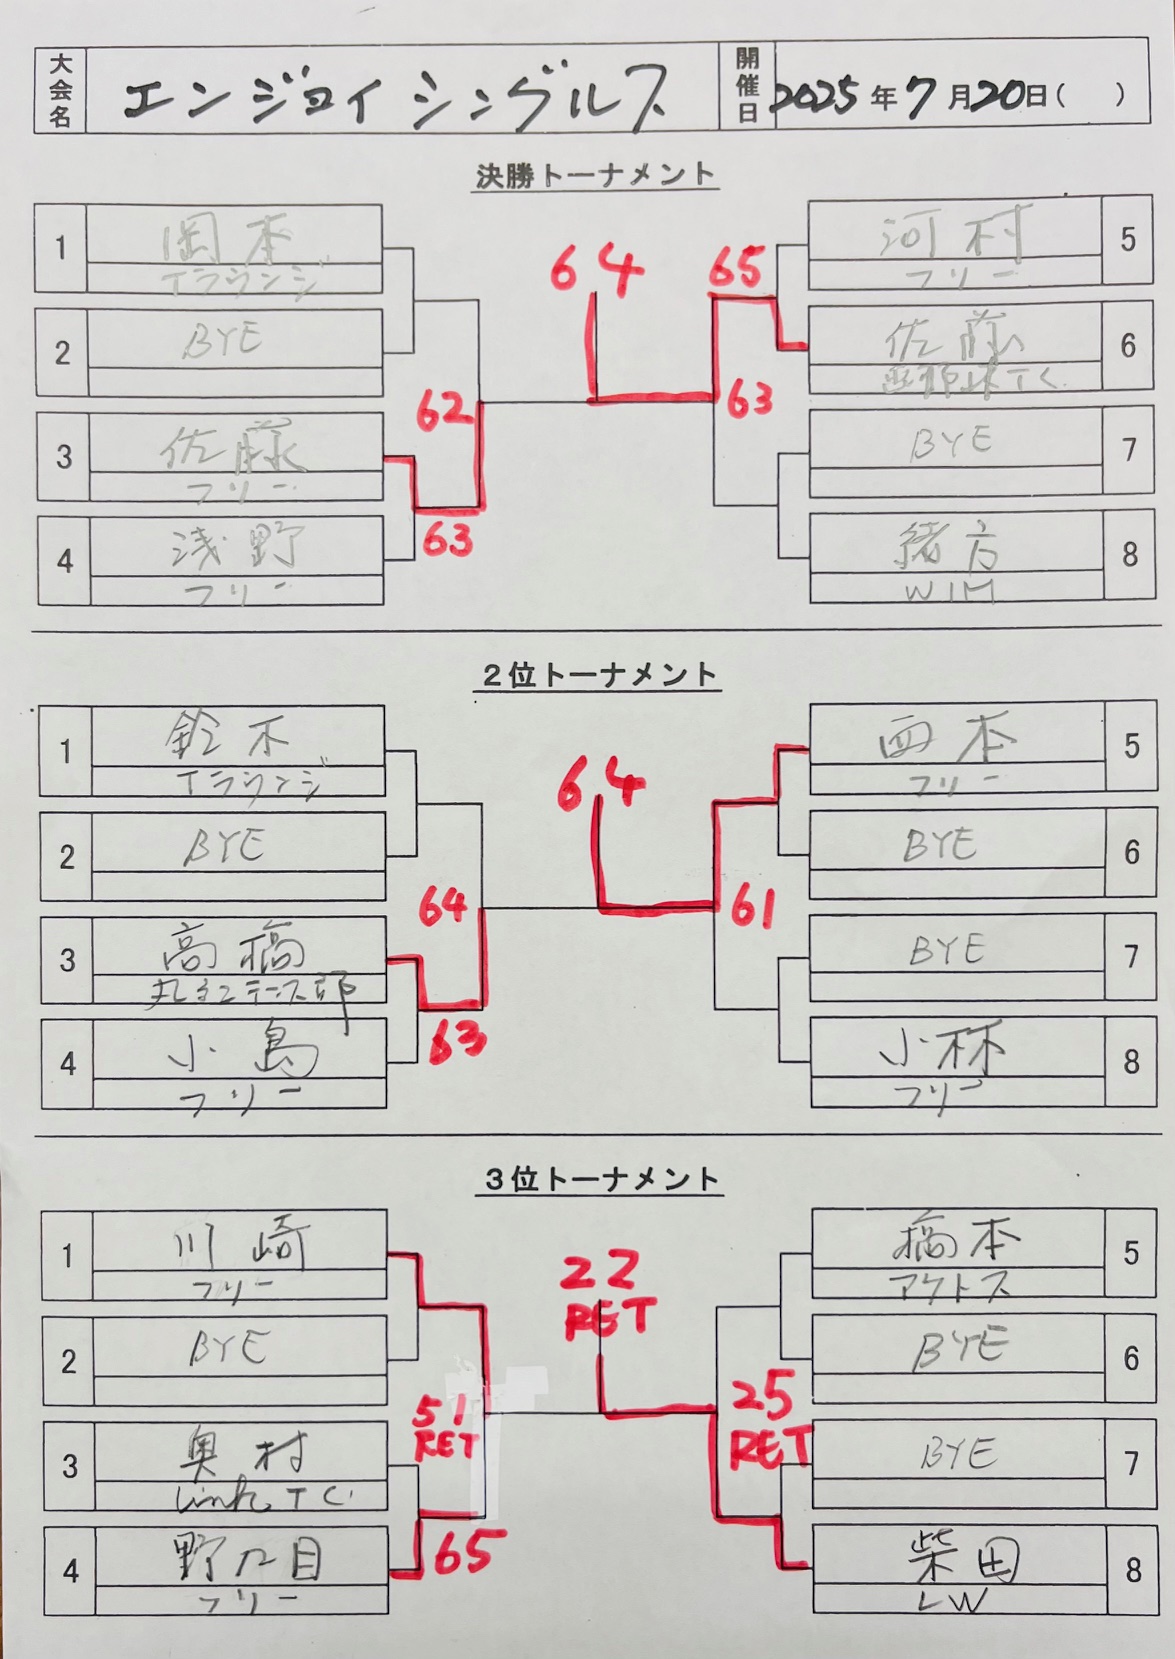 大会名 エンジョイシングルス 開催日 2025年7月20日( )
決勝トーナメント
1 岡本
Tラウンジ
2 BYE
3 佐藤
フリー
4 浅野
フリー
62
63
64
65
63
河村 5
フリー
佐藤 6
TC
BYE 7
緒方 8
WIM
2位トーナメント
1 鈴木
Tラウンジ
2 BYE
3 高橋
テニス部
4 小島
フリー
64
63
64
61
西本 5
フリー
BYE 6
BYE 7
小林 8
フリー
3位トーナメント
1 川崎
フリー
2 BYE
3 奥村
Link TC
4 野々目
フリー
51
RET
65
22
RET
25
RET
橋本 5
アクトス
BYE 6
BYE 7
柴田 8
LW